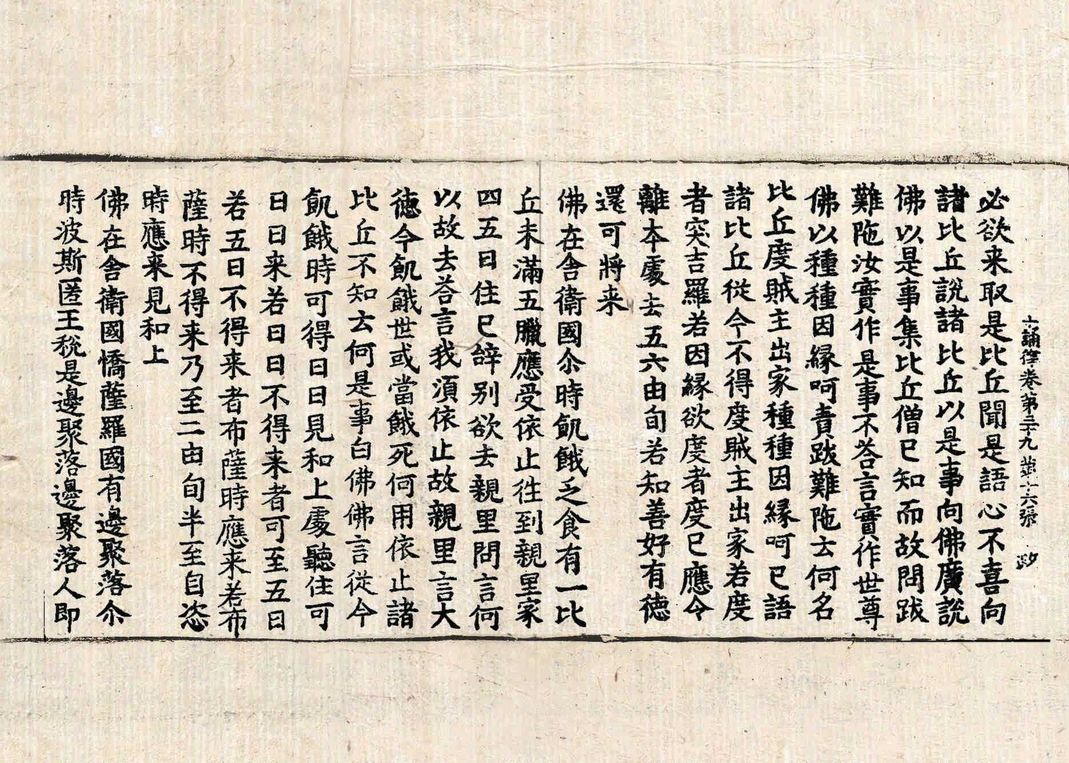 十誦律卷第三九 苐十六張 政
必欲来取是比丘聞是語心不喜向
諸比丘說諸比丘以是事向佛廣說
佛以是事集比丘僧巳知而故問跋
難陁汝實作是事不荅言實作世尊
佛以種種因緣呵責跋難陁云何名
比丘度賊主出家種種因緣呵巳語
諸比丘從今不得度賊主出家若度
者突吉羅若因緣欲度者度巳應令
離本處去五六由旬若知善好有徳
還可將来
佛在舍衛國尒時飢餓乏食有一比
丘未滿五臘應受依止往到親里家
四五日住巳辝別欲去親里問言何
以故去荅言我湏依止故親里言大
徳今飢餓世或當餓死何用依止諸
比丘不知云何是事白佛佛言從今
飢餓時可得日日見和上處聽住可
日日来若日日不得来者可至五日
若五日不得来者布薩時應来若布
薩時不得来乃至二由旬半至自恣
時應来見和上
佛在舍衛國憍薩羅國有邊聚落尒
時波斯匿王稅是邊聚落邊聚落人即